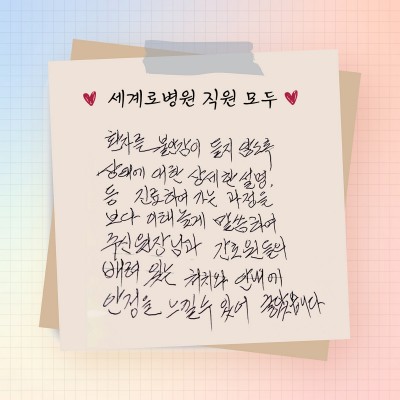 세계로병원 직원 모두
환자를 불안감이 들지 않도록
상태에 대한 상세한 설명,
등 진료하여 가는 과정을
보다 이해들게 말씀하여
주신 원장님과 간호원들의
배려 있는 처치와 안내에
안정을 느낄 수 있어